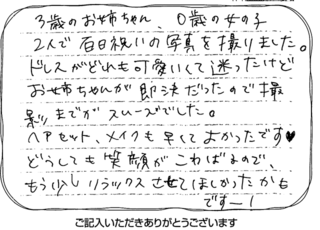 3歳のお姉ちゃん、0歳の女の子
2人で百日祝いの写真を撮りました。
ドレスがどれも可愛いくて迷ったけど
お姉ちゃんが即決だったので撮
影までがスムーズでした。
ヘアセット、メイクも早くてよかったです♥
どうしても笑顔がこわばるので、
もう少しリラックスさせてほしかったかも
ですー!
ご記入いただきありがとうございます